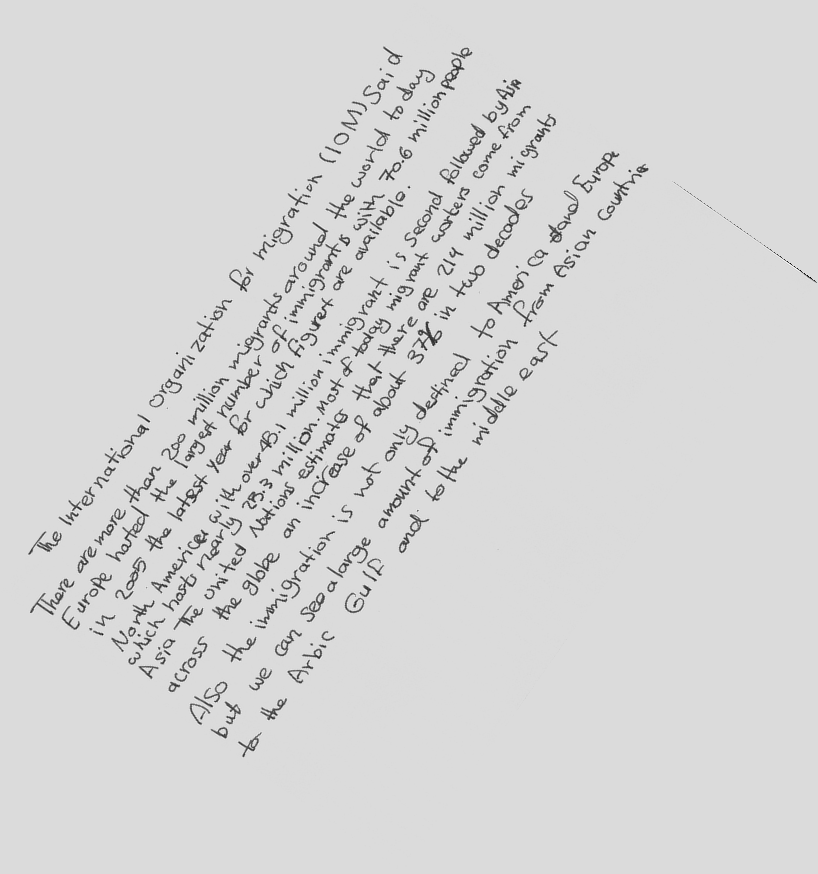 The International organization for migration (IOM) Said
There are more than 200 million migrants around the world to day
Europe hosted the largest number of immigrants with 70.6 million people
in 2005 the latest year for which figures are available.
North American with over 45.1 million immigrant is second followed by Asia
which hosts nearly 25.3 million. Most of today migrant workers come from
Asia The united Nations estimates that there are 214 million migrants
across the globe an increase of about 37% in two decades
Also the immigration is not only destined to America and Europe
but we can see a large amount of immigration from Asian Countries
to the Arbic Gulf and to the middle east